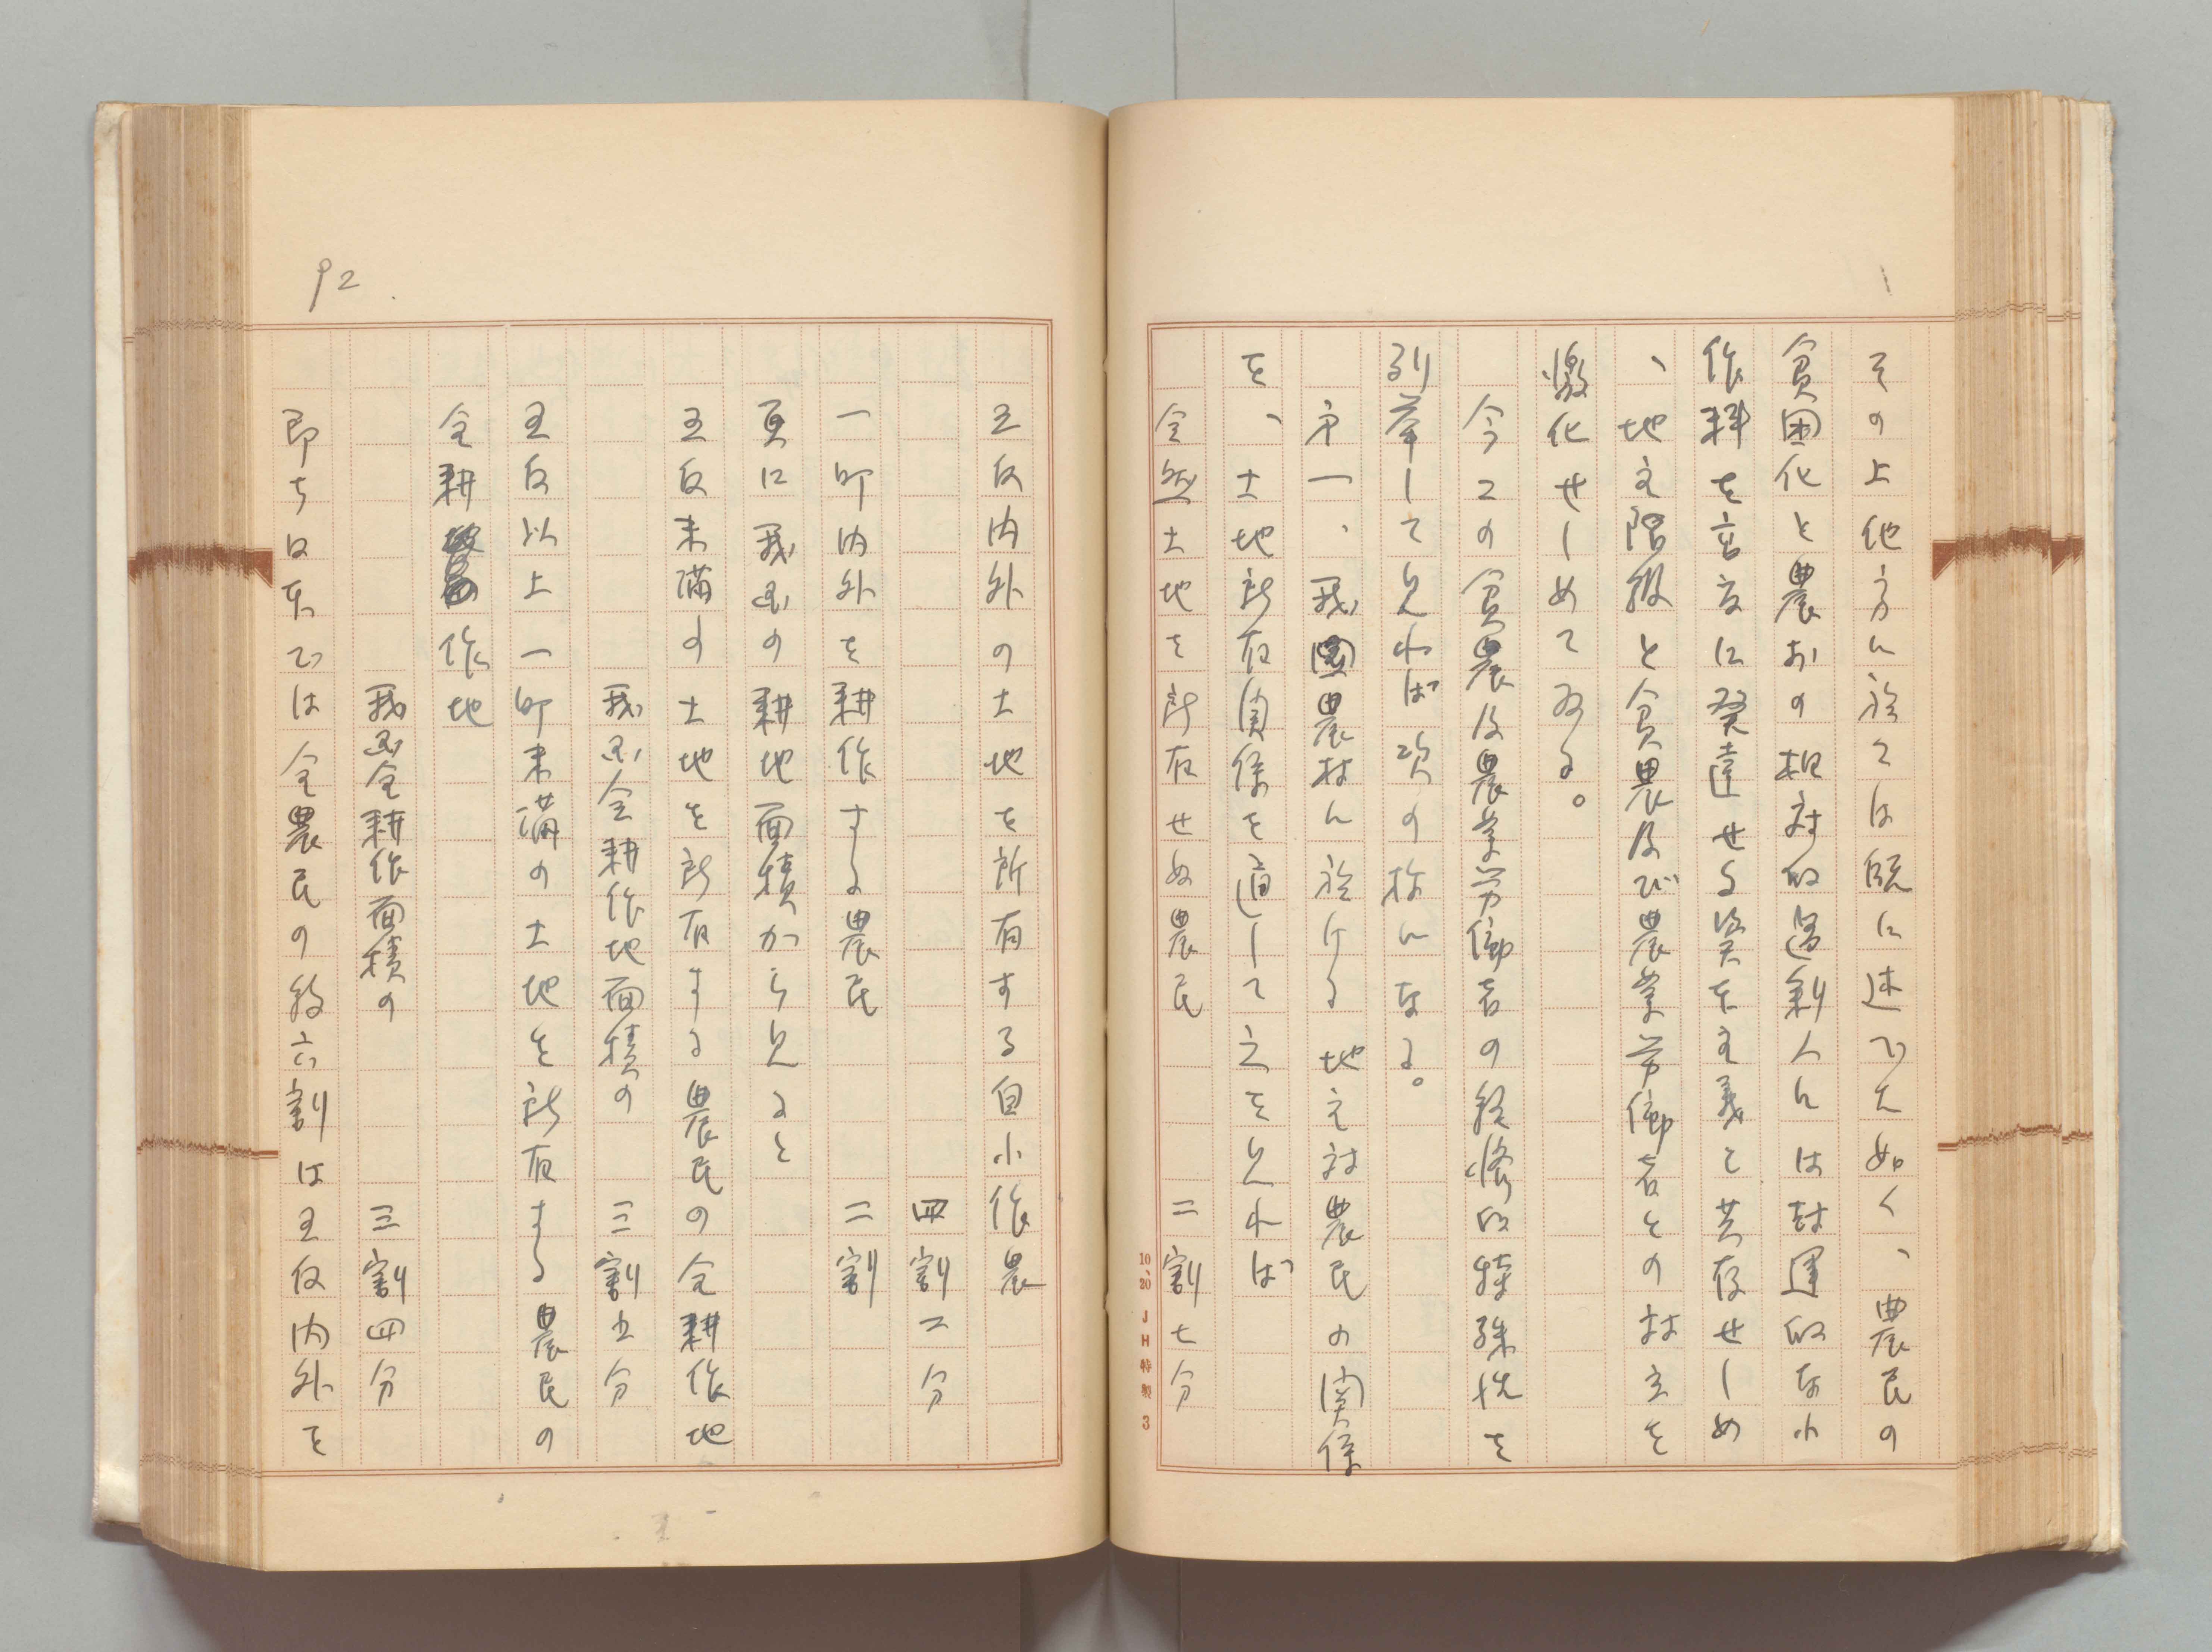 その上他方に於ては既に述べた如く、農民の
貧困化と農村の相対的過剰人口は封建的な小
作料を高度に発達せる資本主義と共存せしめ
、地主階級と貧農及び農業労働者との対立を
激化せしめてゐる。
今この貧農及農業労働者の経済的特殊性を
列挙して見れば次の様になる。
第一、我國農村に於ける地主対農民の関係
を、土地所有関係を通して之を見れば
全然土地を所有せぬ農民 二割七分
10、20 JH特製 3
92
五反内外の土地を所有する自小作農
四割二分
一町内外を耕作する農民 二割
更に我国の耕地面積から見ると
五反未満の土地を所有する農民の全耕作地
我国全耕作地面積の 三割五分
五反以上一町未満の土地を所有する農民の
全耕作地
我国全耕作面積の 三割四分
即ち日本では全農民の約六割は五反内外を